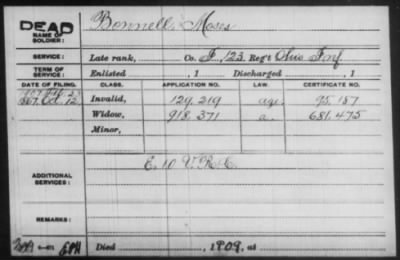 DEAD
NAME OF SOLDIER: Bonnell, Moses
SERVICE: Late rank, Co. F, 123 Reg't Ohio Inf.
TERM OF SERVICE: Enlisted , 1 Discharged , 1
DATE OF FILING. CLASS. APPLICATION NO. LAW. CERTIFICATE NO.
1867 Oct. 12 Invalid, 129,219 95,187
Widow, 918,371 a. 681,475
Minor,
ADDITIONAL SERVICES: E. 10 V.R.C.
REMARKS:
Died , 1909, at